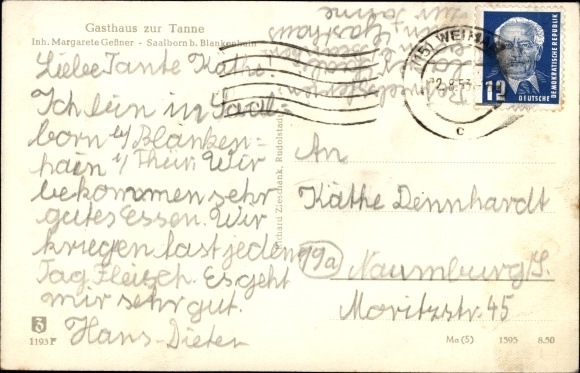 Gasthaus zur Tanne
Inh. Margarete Geßner - Saalborn b. Blankenhain
Liebe Tante Käthe!
Ich bin in Saal=
born b/ Blanken=
hain i/ Thür. Wir
bekommen sehr
gutes Essen. Wir
kriegen fast jeden
Tag Fleisch. Es geht
mir sehr gut.
Hans-Dieter
1193 F
Richard Zieschank, Rudolstadt
(15) WEIMAR
c
12
DEUTSCHE
DEMOKRATISCHE REPUBLIK
An
Käthe Dennhardt
19a Naumburg/S.
Moritzstr. 45
Ma (5) 1595 8.50
Gasthaus
zur Tanne